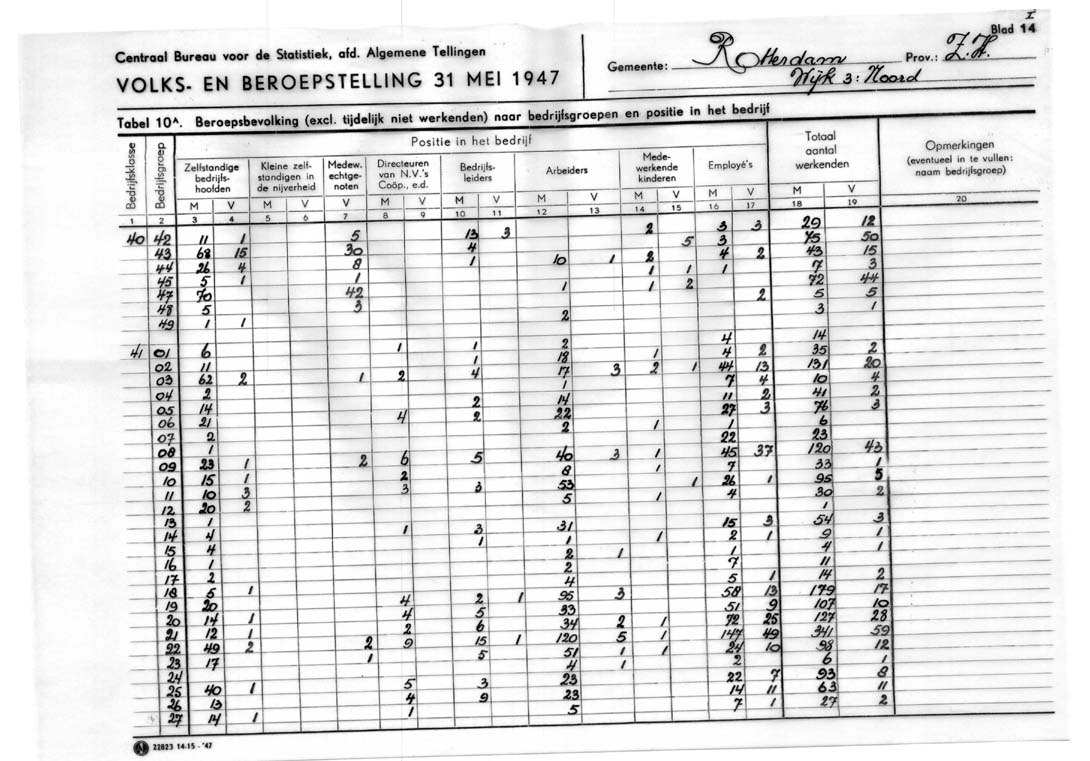 I
Blad 14
Centraal Bureau voor de Statistiek, afd. Algemene Tellingen
VOLKS- EN BEROEPSTELLING 31 MEI 1947
Gemeente: Rotterdam Prov.: Z.H.
Wijk 3: Noord
Tabel 10A. Beroepsbevolking (excl. tijdelijk niet werkenden) naar bedrijfsgroepen en positie in het bedrijf
Bedrijfsklasse
Bedrijfsgroep
Positie in het bedrijf
Zelfstandige bedrijfs-hoofden
Kleine zelf-standigen in de nijverheid
Medew. echtge-noten
Directeuren van N.V.'s Coöp., e.d.
Bedrijfs-leiders
Arbeiders
Mede-werkende kinderen
Employé's
Totaal aantal werkenden
Opmerkingen (eventueel in te vullen: naam bedrijfsgroep)
M V M V V M V M V M V M V M V M V
1 2 3 4 5 6 7 8 9 10 11 12 13 14 15 16 17 18 19 20
40 42 11 1 5 13 3 2 3 3 29 12
43 68 15 30 4 5 3 75 50
44 26 4 8 1 10 1 2 4 2 43 15
45 5 1 1 1 1 1 7 3
47 70 42 1 1 2 72 44
48 5 3 2 5 5
49 1 1 2 3 1
41 01 6 1 1 2 4 14
02 11 1 18 1 4 2 35 2
03 62 2 1 2 4 17 3 2 1 44 13 131 20
04 2 1 7 4 10 4
05 14 2 14 11 2 41 2
06 21 4 2 22 27 3 76 3
07 2 2 1 1 6
08 1 22 23
09 23 1 2 6 5 40 3 1 45 37 120 43
10 15 1 2 8 1 7 33 1
11 10 3 3 3 53 1 26 1 95 5
12 20 2 5 1 4 30 2
13 1 1
14 4 1 3 31 15 3 54 3
15 4 1 1 1 2 1 9 1
16 1 2 1 1 4 1
17 2 2 7 11
18 5 1 4 5 1 14 2
19 20 4 2 1 95 3 58 13 179 17
20 14 1 4 5 33 51 9 107 10
21 12 1 2 6 34 2 1 72 25 127 28
22 49 2 2 9 15 1 120 5 1 147 49 341 59
23 17 1 5 51 1 1 24 10 98 12
24 4 1 2 6 1
25 40 1 5 3 23 22 7 93 8
26 13 4 9 23 14 11 63 11
27 14 1 1 5 7 1 27 2
22823 14-15 - '47